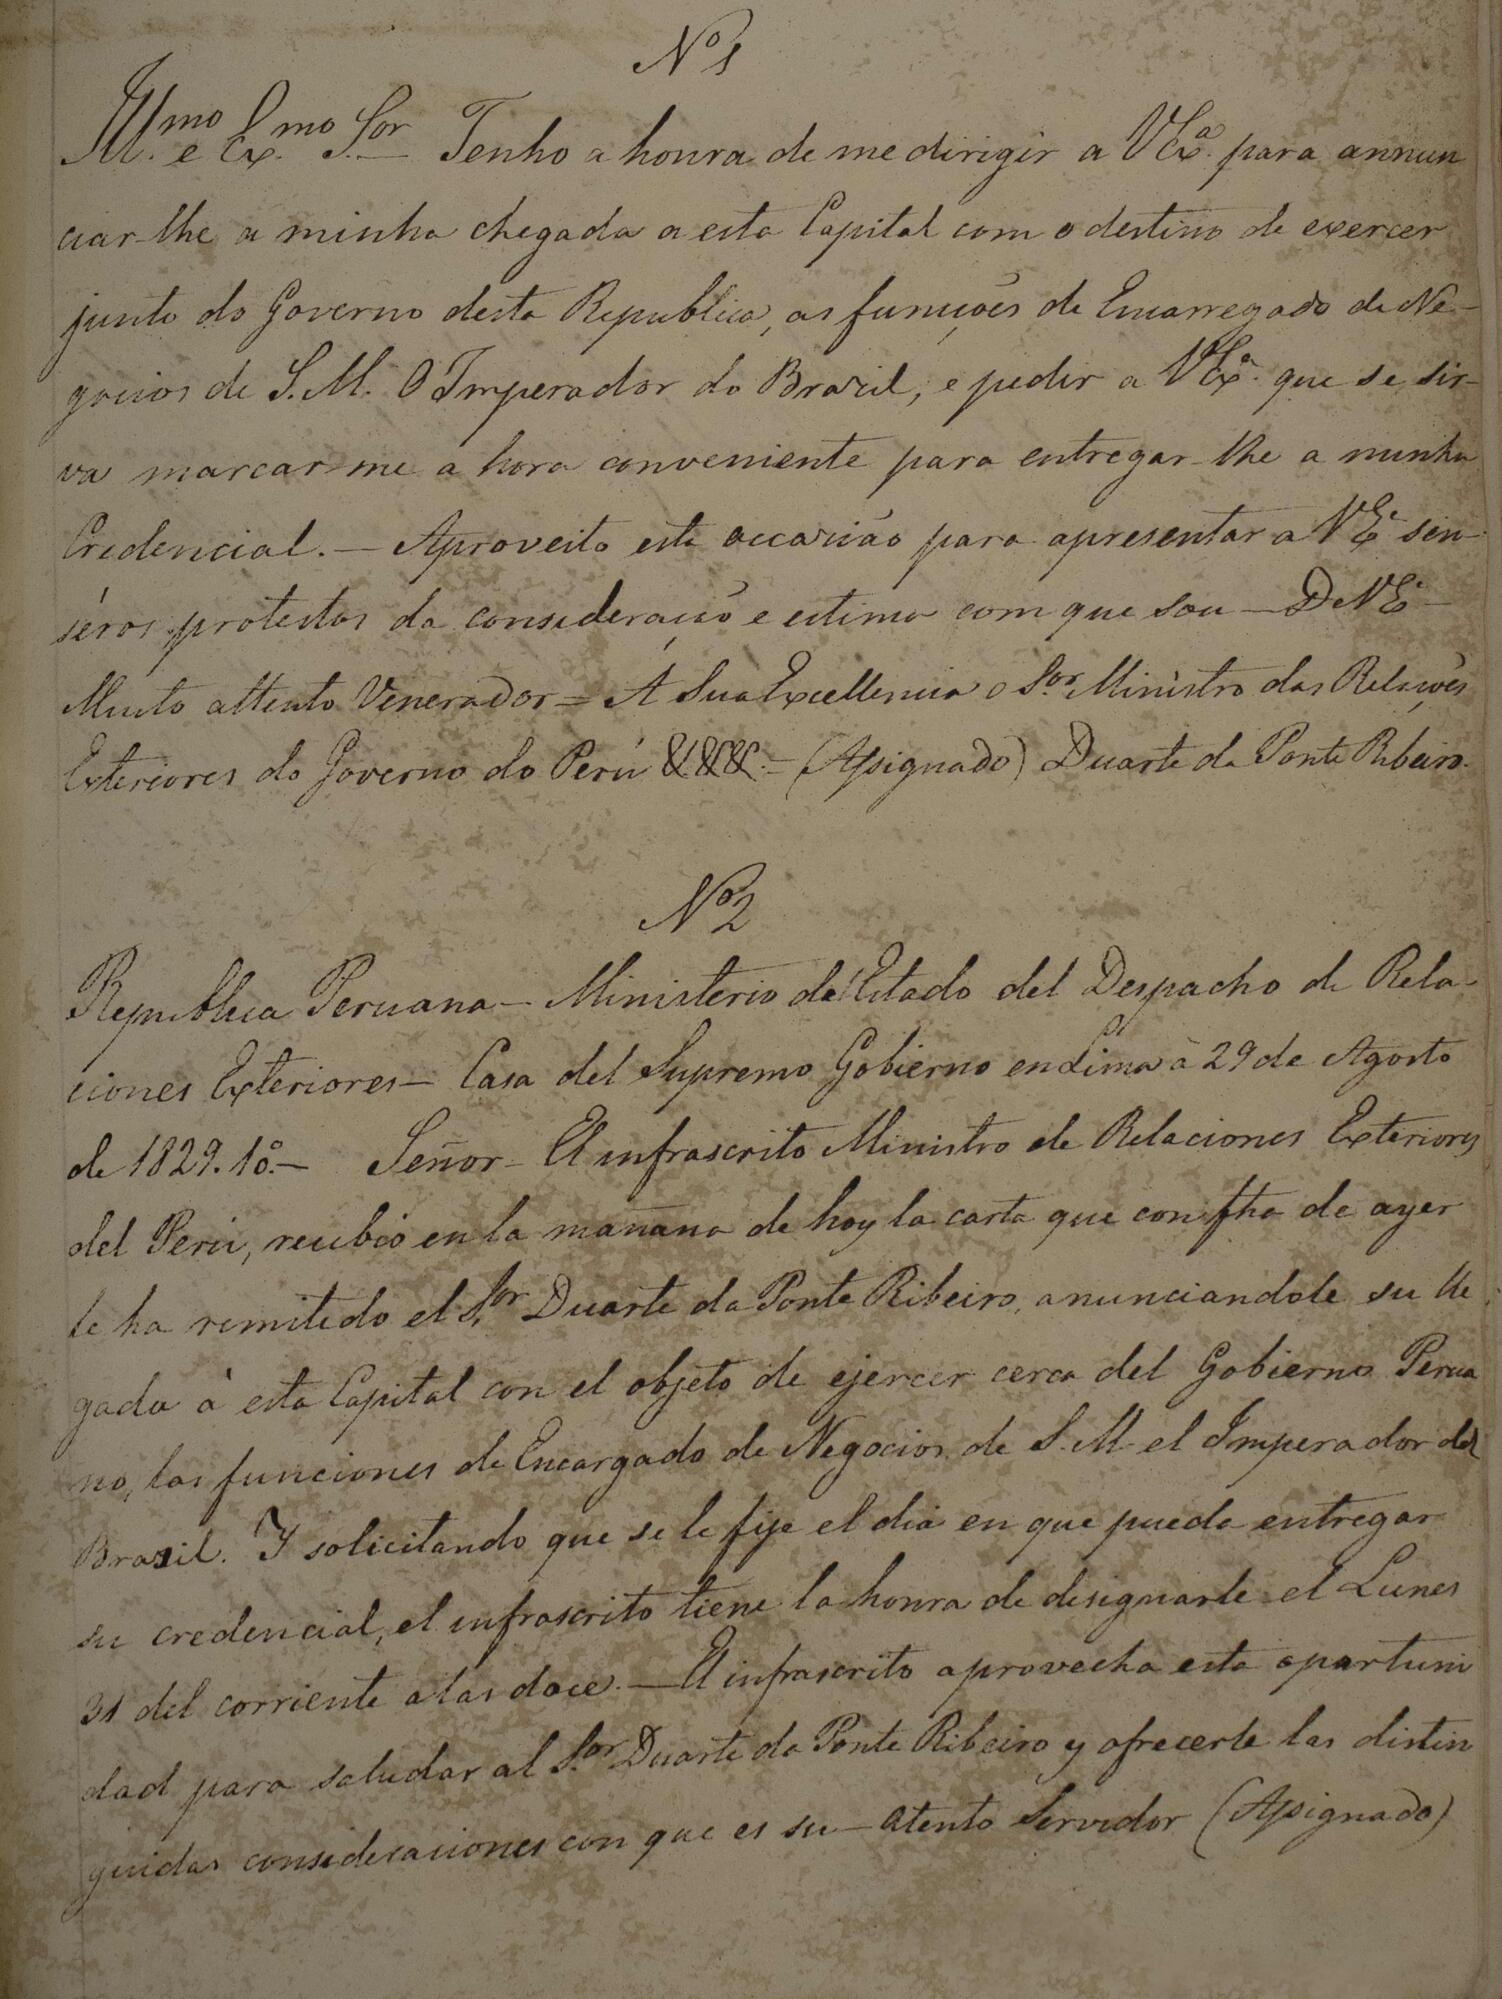 Nº 1
Ill.mo e Ex.mo S.or — Tenho a honra de me dirigir a VEx.ª para annun
ciar-lhe a minha chegada a esta Capital com o destino de exercer
junto do Governo desta Republica, as funcções de Encarregado de Ne-
gocios de S. M. O Imperador do Brazil, e pedir a VEx.ª que se sir-
va marcar-me a hora conveniente para entregar-lhe a minha
Credencial. — Aproveito esta occazião para apresentar a VE sin-
séros protestos da consideração e estima com que sou — De VE —
Muito attento Venerador = A Sua Excellencia o S.or Ministro das Relações
Exteriores do Governo do Perú &. &. &. = (Assignado) Duarte da Ponte Ribeiro.
Nº 2
Republica Peruana — Ministerio de Estado del Despacho de Rela-
ciones Exteriores — Casa del Supremo Gobierno en Lima à 29 de Agosto
de 1829. 10.º — Señor — El infrascrito Ministro de Relaciones Exteriores
del Perú, recibió en la mañana de hoy la carta que con fha de ayer
le ha remitido el S.or Duarte da Ponte Ribeiro, anunciandole su lle
gada à esta Capital con el objeto de ejercer cerca del Gobierno Perua
no, las funciones de Encargado de Negocios de S. M. el Imperador del
Brasil. Y solicitando que se le fije el dia en que pueda entregar
su credencial, el infrascrito tiene la honra de designarle el Lunes
31 del corriente a las doce. — El infrascrito aprovecha esta oportuni
dad para saludar al S.or Duarte da Ponte Ribeiro y ofrecerle las distin
guidas consideraciones con que es su — atento Servidor (Assignado)